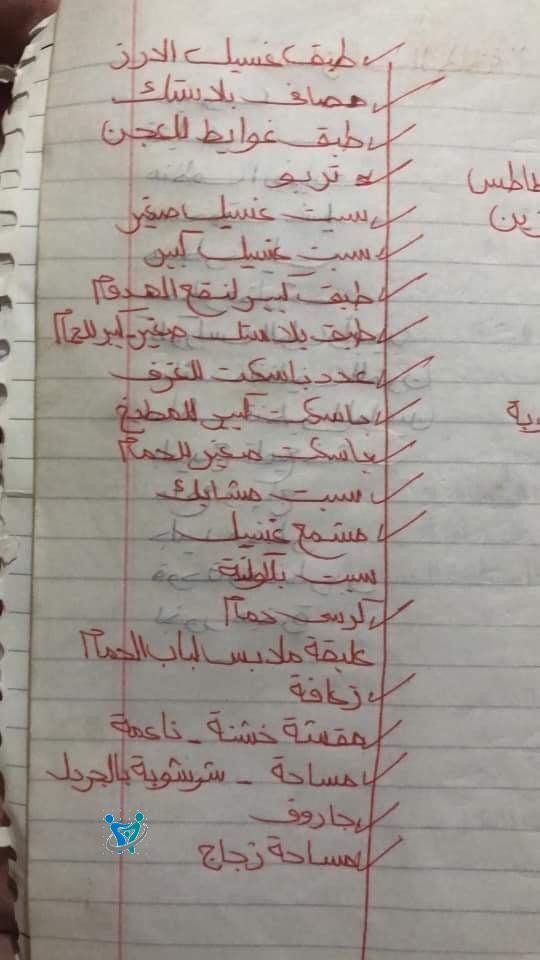 طبق غسيل الارز
مصافى بلاستك
طبق غوايط للعجن
سبت غسيل صغير
سبت غسيل كبير
طبق كبير لنقع الهدوم
طبق بلاستك صغير كبير للحمام
عدد باسكت للغرف
باسكت كبير للمطبخ
باسكت صغير للحمام
سبت مشابك
مشمع غسيل
سبت بلكونة
كرسى حمام
عليقة ملابس لباب الحمام
زعافة
مقشة خشنة - ناعمة
مساحة - شرشوبة بالجردل
جاروف
مساحة زجاج
طاطس
وية